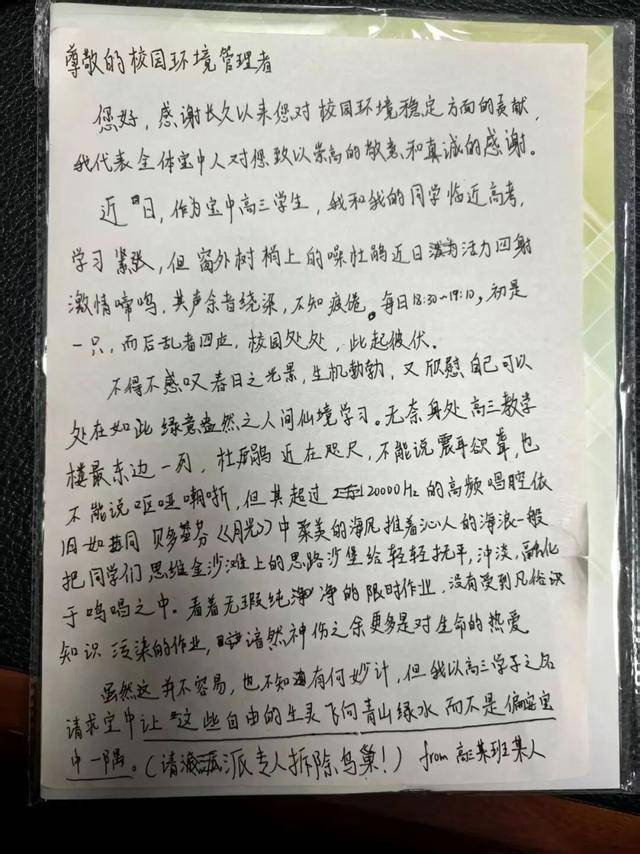 尊敬的校园环境管理者
您好，感谢长久以来您对校园环境稳定方面的贡献，
我代表全体宝中人对您致以崇高的敬意和真诚的感谢。
近日，作为宝中高三学生，我和我的同学临近高考，
学习紧张，但窗外树梢上的噪杜鹃近日活力四射
激情啼鸣，其声余音绕梁，不知疲倦。每日18:30~19:10，初是
一只，而后乱者四应，校园处处，此起彼伏。
不得不感叹春日之光景，生机勃勃，又欣慰自己可以
处在如此绿意盎然之人间仙境学习。无奈身处高三教学
楼最东边一列，杜鹃近在咫尺，不能说震耳欲聋，也
不能说呕哑嘲哳，但其超过20000Hz的高频唱腔依
旧如同贝多芬《月光》中柔美的海风推着沁人的海浪一般
把同学们思维金沙滩上的思路沙堡给轻轻抚平，冲淡，融化
于鸣唱之中。看着无瑕纯净的限时作业，没有受到凡俗识
知识污染的作业，黯然神伤之余更多是对生命的热爱
虽然这并不容易，也不知有何妙计，但我以高三学子之名
请求宝中让这些自由的生灵飞向青山绿水而不是偏安宝
中一隅。（请派专人拆除鸟巢！） from 高三某班某人